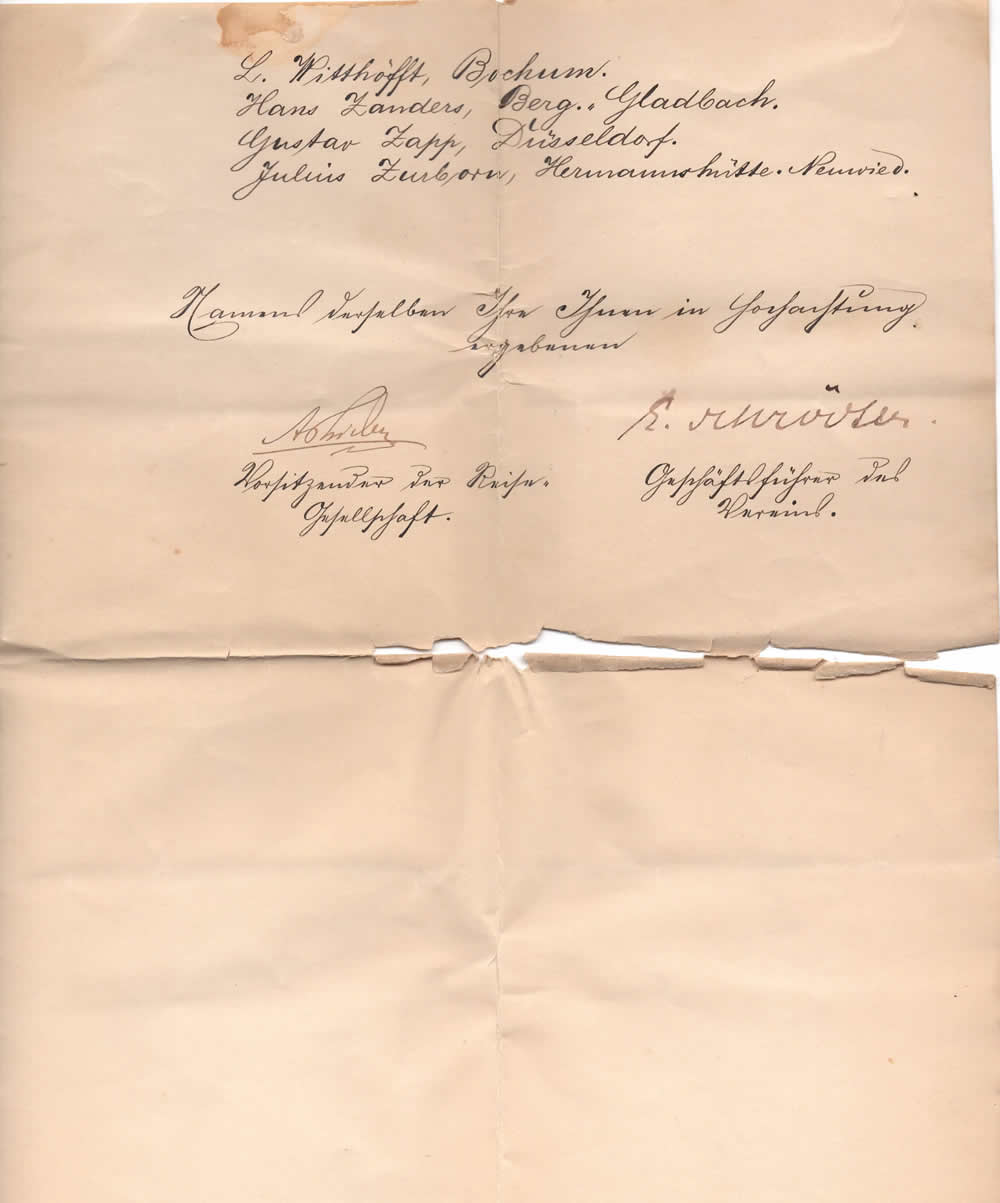 L. Witthöfft, Bochum.
Hans Zanders, Berg.-Gladbach.
Gustav Zapp, Düsseldorf.
Julius Zurborn, Hermannshütte-Neuwied.
Namens derselben Ihre Ihnen in Hochachtung
ergebenen
E. Schrödter.
Vorsitzender der Reise-
Gesellschaft.
Geschäftsführer des
Vereins.